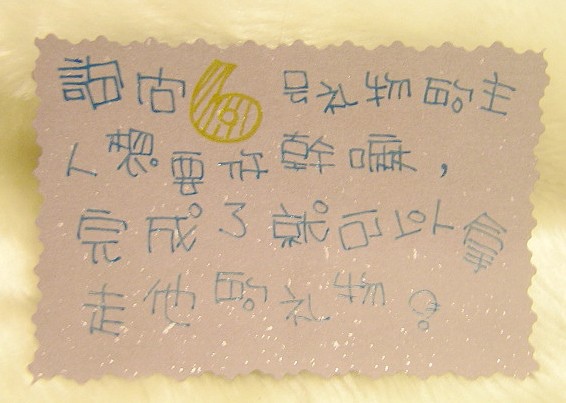 請问6号礼物的主
人想要你幹嘛，
完成了就可以拿
走他的礼物？